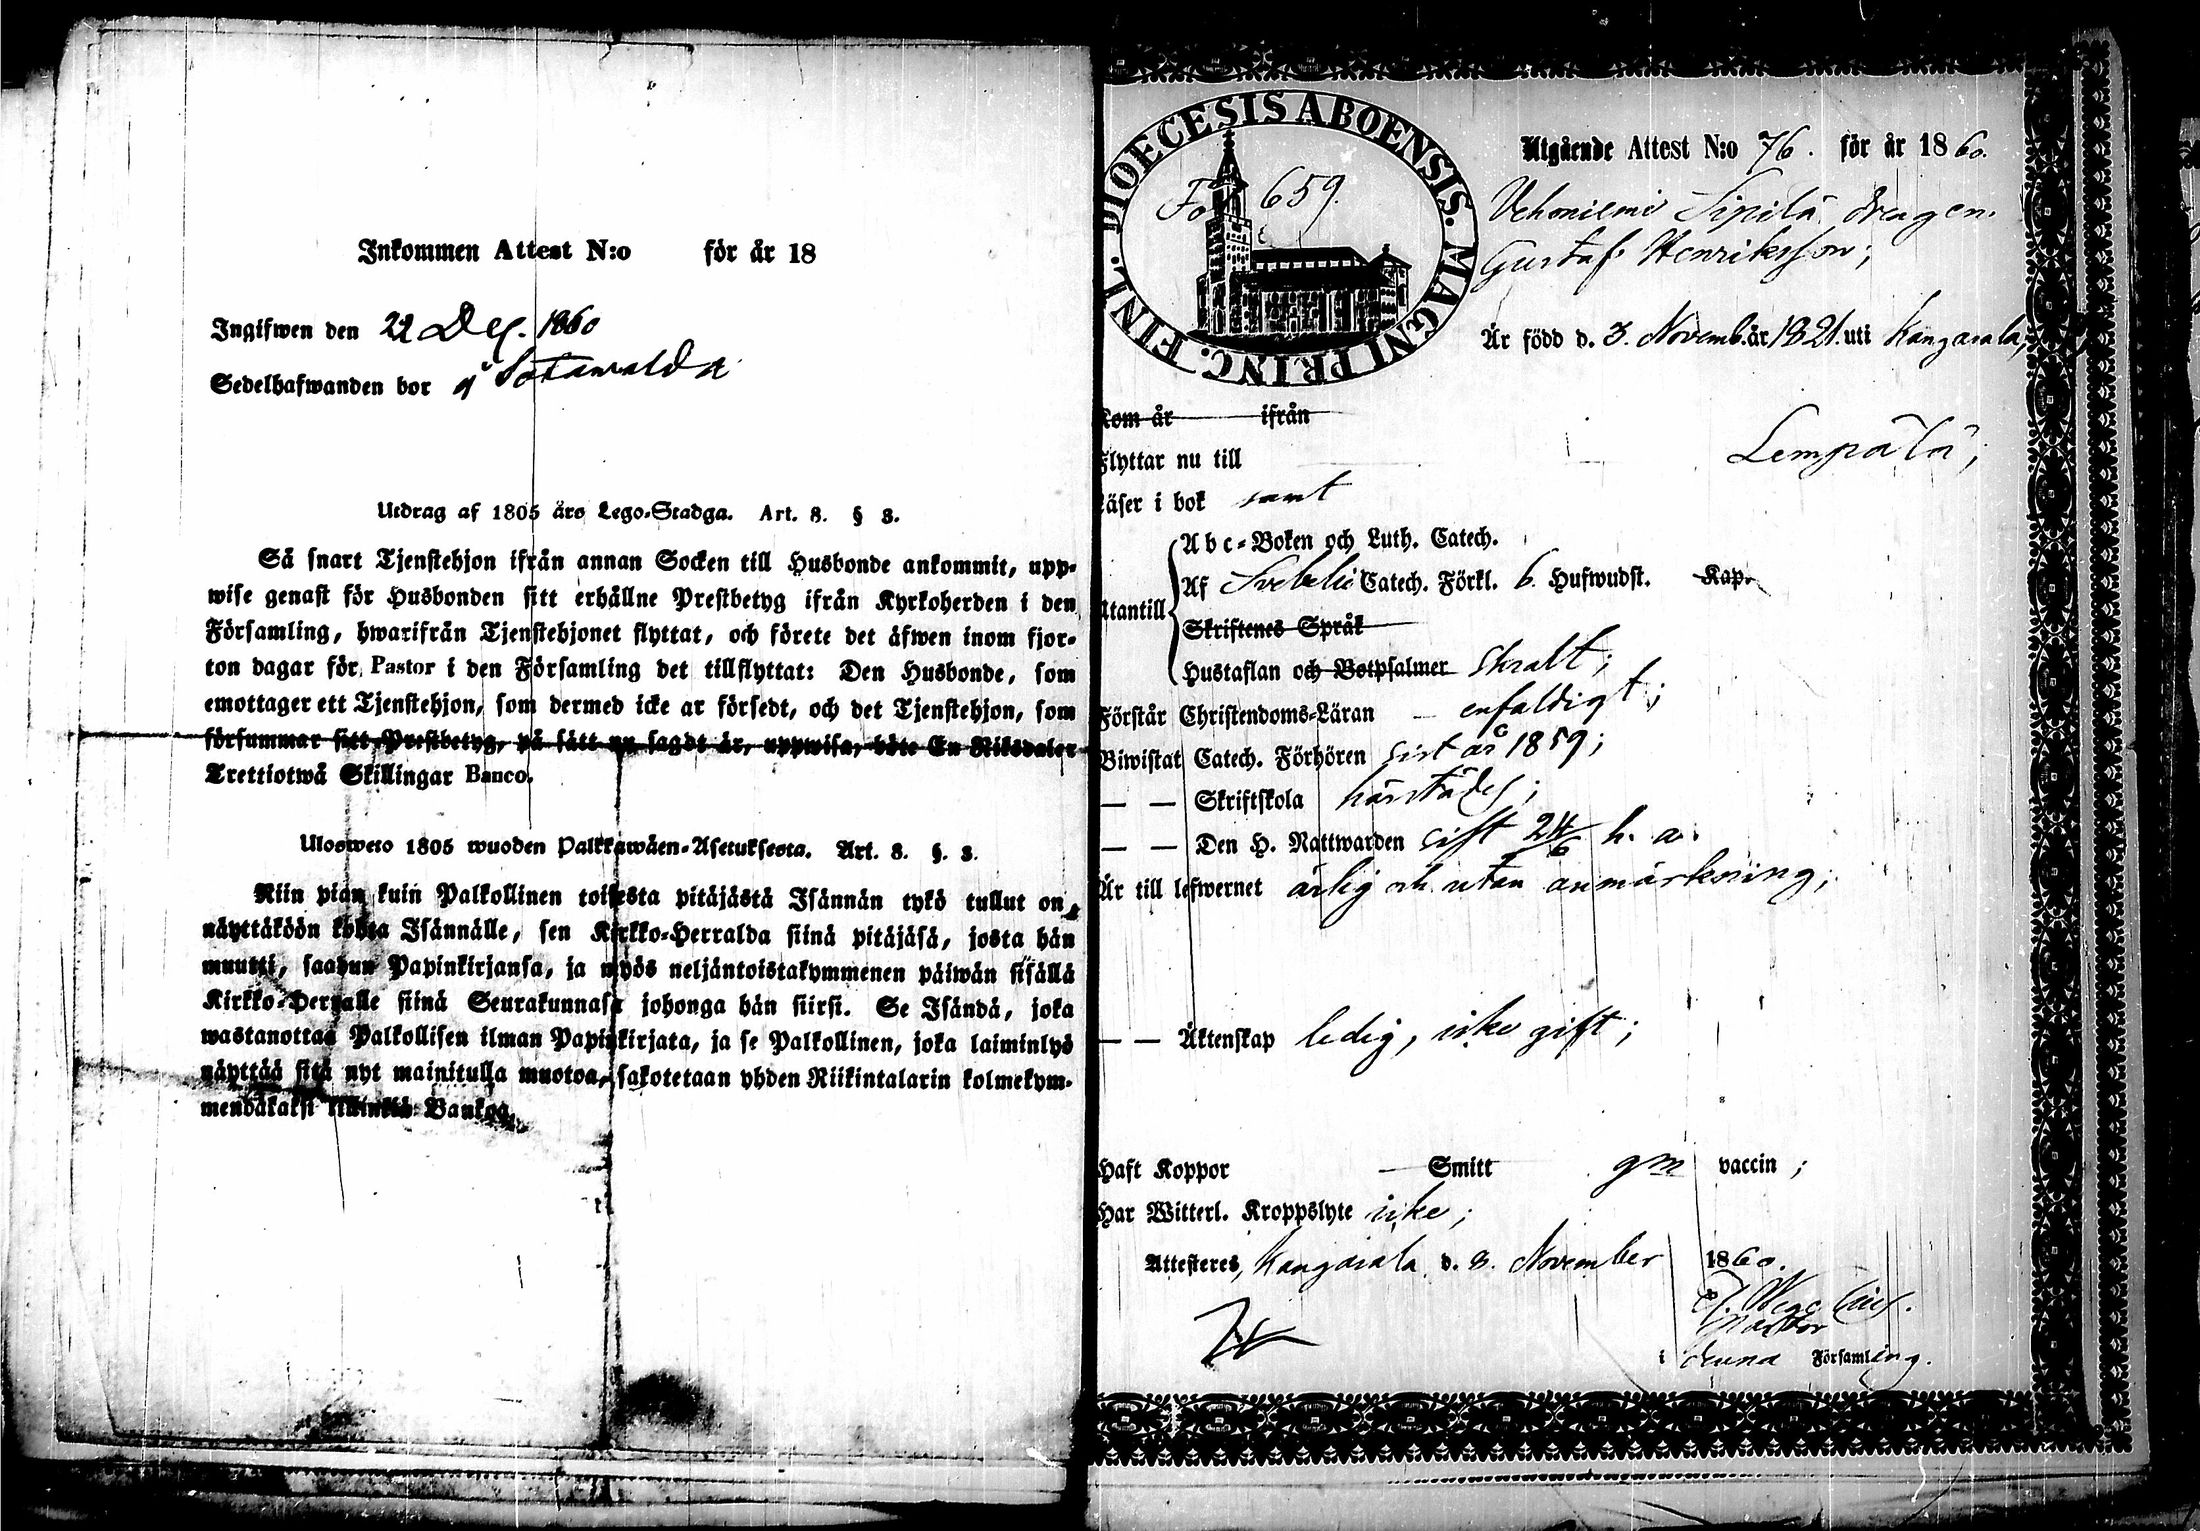 Inkommen Attest N:o för år 18
Ingifwen den 22 Dec. 1860
Sedelhafwanden bor å Sotawalda
Utdrag af 1805 års Lego-Stadga. Art. 8. § 3.
Så snart Tjenstehjon ifrån annan Socken till Husbonde ankommit, upp-
wise genast för Husbonden sitt erhållne Prestbetyg ifrån Kyrkoherden i den
Församling, hwarifrån Tjenstehjonet flyttat, och förete det äfwen inom fjor-
ton dagar för Pastor i den Församling det tillflyttat: Den Husbonde, som
emottager ett Tjenstehjon, som dermed icke är försedt, och det Tjenstehjon, som
försummar sitt Prestbetyg, på sätt nu sagdt är, uppwisa, böte En Riksdaler
Trettiotwå Skillingar Banco.
Ulosweto 1805 wuoden Palkkawäen-Asetuksesta. Art. 8. §. 3.
Niin pian kuin Palkollinen toisesta pitäjästä Isännän tykö tullut on,
näyttäköön kohta Isännälle, sen Kirkko-Herralda siinä pitäjäsä, josta hän
muutti, saadun Papinkirjansa, ja myös neljäntoistakymmenen päiwän sisällä
Kirkko-Herralle siinä Seurakunnasa johonga hän siirsi. Se Isändä, joka
wastanottaa Palkollisen ilman Papinkirjata, ja se Palkollinen, joka laiminlyö
näyttää sitä nyt mainitulla muotoa, sakotetaan yhden Riikintalarin kolmekym-
mendäkaksi killinkiä Bankoa.
DIOECESIS ABOENSIS. MAGNI PRINC. FINL.
Fol 659.
Utgående Attest N:o 76. för år 1860.
Vehoniemi Sipilä drengen
Gustaf Henriksson;
Är född d. 3. Novemb. år 1821. uti Kangasala,
Kom år ifrån
Flyttar nu till Lempälä;
Läser i bok samt
Abc-Boken och Luth. Catech.
Af Svebelii Catech. Förkl. 6. Hufwudst. Kap.
Utantill
Skriftenes Språk
Hustaflan och Botpsalmer skralt;
Förstår Christendoms-Läran enfaldigt;
Biwistat Catech. Förhören sist år 1859;
— — Skriftskola härstädes;
— — Den H. Nattwarden sist 24/6 h. a.
Är till lefwernet ärlig och utan anmärkning;
— — Äktenskap ledig, icke gift;
Haft Koppor Smitt gm vaccin;
Har Witterl. Kroppslyte icke;
Attesteres, Kangasala d. 8. November 1860.
Pastor
i denna Församling.